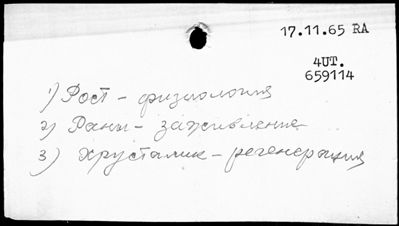 17.11.65 RA
4UT.
659114
1) Рост - физиология
2) Раны - заживление
3) Хрусталик - регенерация